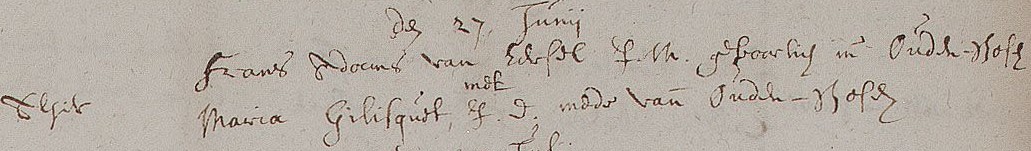 den 27 Junij
Frans Adams van Eersel J. M. geboortich in Oudenbosch
met
Maria Gilisquet, J. d. mede van Oudenbosch